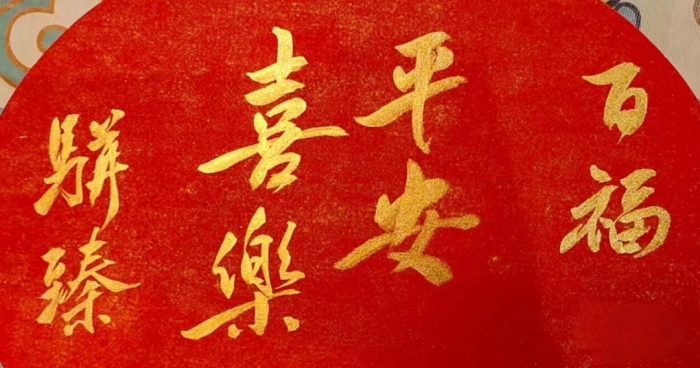 百福
平安
喜樂
駢臻